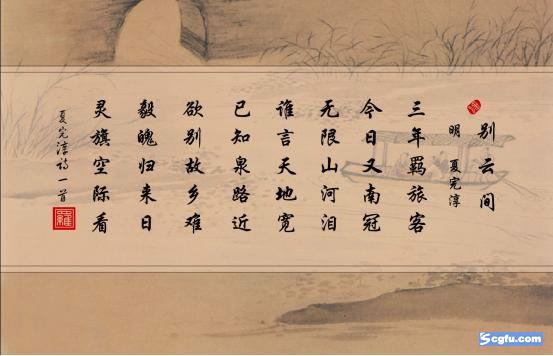 别云间
明 夏完淳
三年羁旅客
今日又南冠
无限山河泪
谁言天地宽
已知泉路近
欲别故乡难
毅魄归来日
灵旗空际看
夏完淳诗一首
羅
Scgfu.com